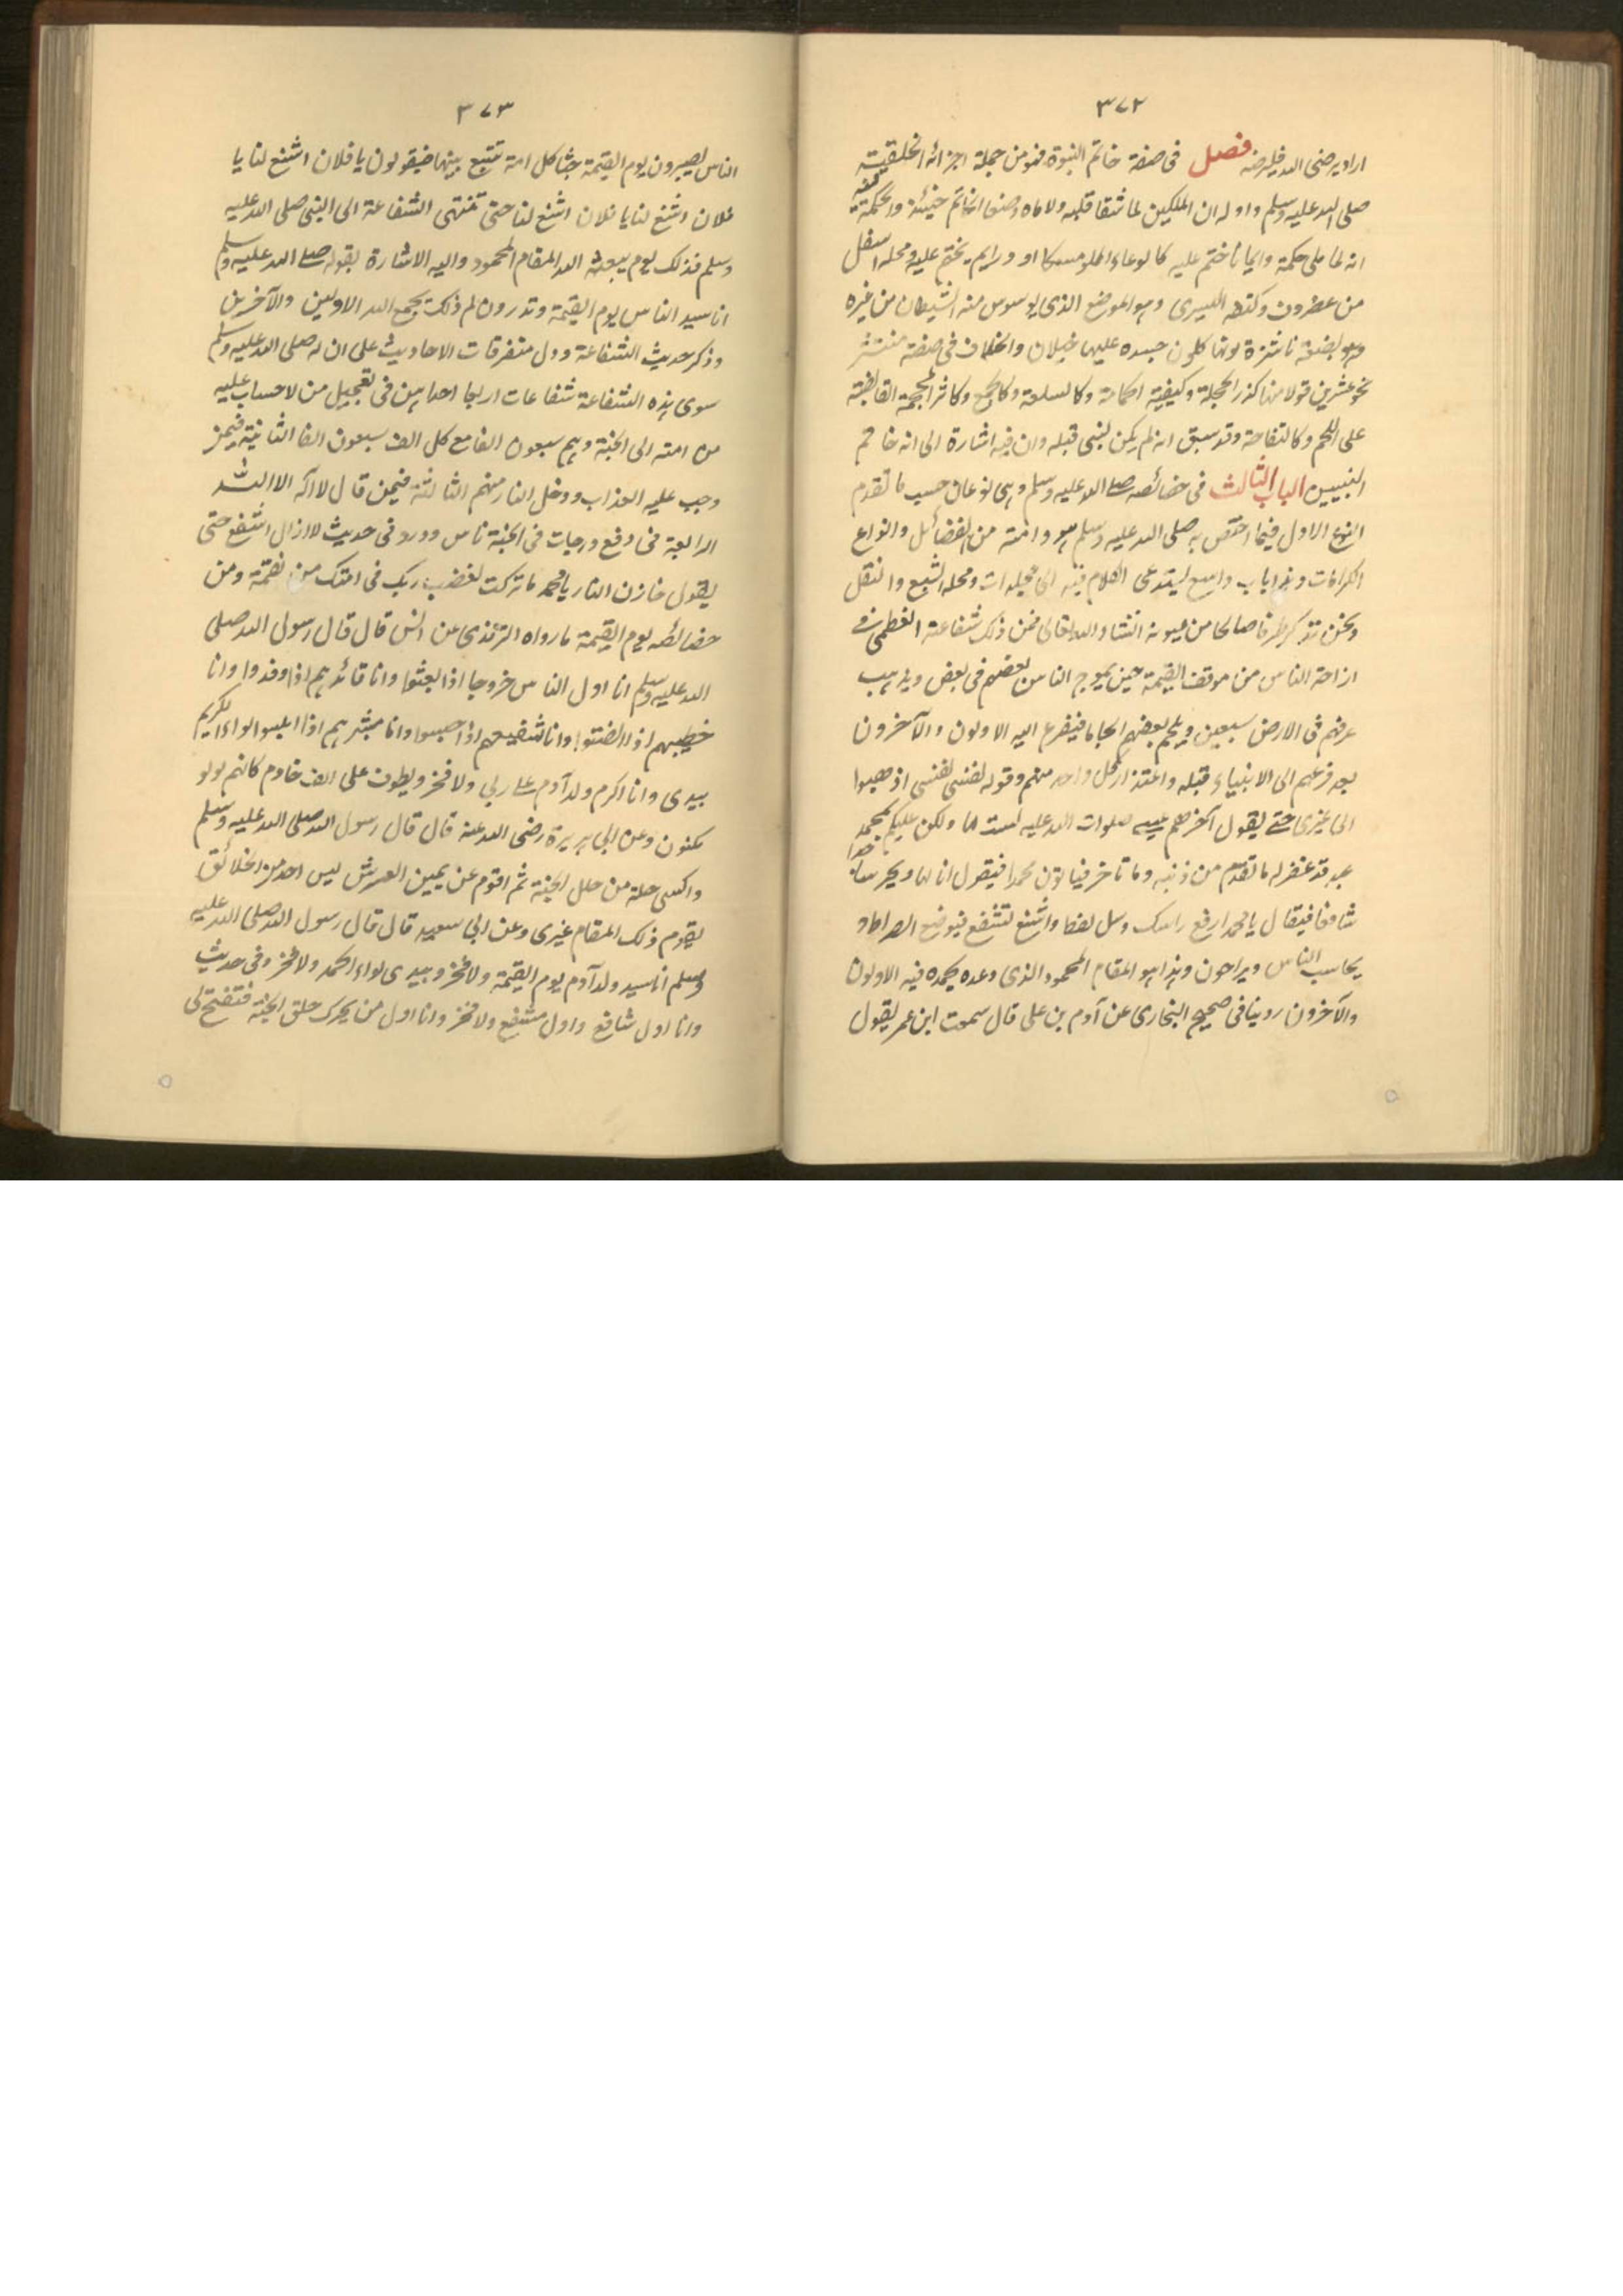 ٣٧٢
اراد يرضى الله فليرضه فصل فى صفة خاتم النبوة فهو من جملة اجزائه الخلقية
صلى الله عليه وسلم واوله ان الملكين لما شقا قلبه ولاماه وضعا الخاتم حينئذ والحكمة فيه
انه لما ملى حكمة وايمانا ختم عليه كالوعاء المملو مسكا او درا ثم يختم عليه ومحله اسفل
من غضروف وكتفه اليسرى وهو الموضع الذى يوسوس منه الشيطان من غيره
وهو بضعة ناشزة لونها كلون جسده عليها خيلان واختلاف فى صفته منتشر
نحو عشرين قولا منها كزر الحجلة وكبيضة الحمامة وكالسلعة وكالجمع وكاثر المحجمة القابضة
على اللحم وكالتفاحة وقد سبق انه لم يكن لنبى قبله وان فيه اشارة الى انه خاتم
النبيين الباب الثالث فى خصائصه صلى الله عليه وسلم وهى نوعان حسب ما تقدم
النوع الاول فيما اختص به صلى الله عليه وسلم هو وامته من الفضائل وانواع
الكرامات وهذا باب واسع يستدعى الكلام فيه الى مجلدات ومحله التتبع والنقل
ونحن نذكر طرفا صالحا من عيونه انشاء الله تعالى فمن ذلك شفاعته العظمى فى
ازاحة الناس من موقف القيمة حين يموج الناس بعضهم فى بعض ويذهب
عرقهم فى الارض سبعين ويلجم بعضهم الجاما فيفزع اليه الاولون والآخرون
بعد فزعهم الى الانبياء قبله واعتذار كل واحد منهم وقوله نفسى نفسى اذهبوا
الى غيرى حتى يقول آخرهم عيسى صلوات الله عليه لست لها ولكن عليكم بمحمد
عبد قد غفر له ما تقدم من ذنبه وما تاخر فياتون محمدا فيقول انا لها ويخر ساجدا
شافعا فيقال يا محمد ارفع راسك وسل تعطا واشفع تشفع فيوضع الصراط و
يحاسب الناس ويراحون وهذا هو المقام المحمود الذى وعده يحمده فيه الاولون
والآخرون روينا فى صحيح البخارى عن آدم بن على قال سمعت ابن عمر يقول
٣٧٣
الناس يصيرون يوم القيمة جثا كل امة تتبع نبيها فيقولون يا فلان اشفع لنا يا
فلان اشفع لنا يا فلان اشفع لنا حتى تنتهى الشفاعة الى النبى صلى الله عليه
وسلم فذلك يوم يبعثه الله المقام المحمود واليه الاشارة بقوله صلى الله عليه وسلم
انا سيد الناس يوم القيمة وتدرون لم ذلك يجمع الله الاولين والآخرين
وذكر حديث الشفاعة ودل متفرقات الاحاديث على ان له صلى الله عليه وسلم
سوى هذه الشفاعة شفاعات اربعا احداهن فى تعجيل من لاحساب عليه
من امته الى الجنة وهم سبعون الفا مع كل الف سبعون الفا الثانية فيمن
وجب عليه العذاب ودخل النار منهم الثالثة فيمن قال لا اله الا الله
الرابعة فى رفع درجات فى الجنة ناس وورد فى حديث لا ازال اشفع حتى
يقول خازن النار يا محمد ما تركت لغضب ربك فى امتك من نقمة ومن
خصائصه يوم القيمة ما رواه الترمذى عن انس قال قال رسول الله صلى
الله عليه وسلم انا اول الناس خروجا اذا بعثوا وانا قائدهم اذا وفدوا وانا
خطيبهم اذا انصتوا وانا شفيعهم اذا حبسوا وانا مبشرهم اذا ابلسوا لواء الكريم
بيدى وانا اكرم ولد آدم على ربى ولا فخر ويطوف على الف خادم كانهم لولو
مكنون وعن ابى هريرة رضى الله عنه قال قال رسول الله صلى الله عليه وسلم
واكسى حلة من حلل الجنة ثم اقوم عن يمين العرش ليس احد من الخلائق
يقوم ذلك المقام غيرى وعن ابى سعيد قال قال رسول الله صلى الله عليه
وسلم انا سيد ولد آدم يوم القيمة ولا فخر وبيدى لواء الحمد ولا فخر وفى حديث
وانا اول شافع واول مشفع ولا فخر وانا اول من يحرك حلق الجنة فتفتح لى